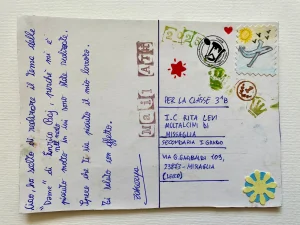 Ciao, ho scelto di realizzare il tema delle
"Dame di Enrico Baj", perché mi è
piaciuto molto in cui sono state realizzate.
nel modo
Spero che ti sia piaciuto il mio lavoro.
Ti saluto con affetto.
MAIL ART
PER LA CLASSE 3ªB
I.C RITA LEVI
MONTALCINI DI
MISSAGLIA
SECONDARIA I GRADO
VIA G. GARIBALDI 109,
23873 - MISSAGLIA
(LECCO)